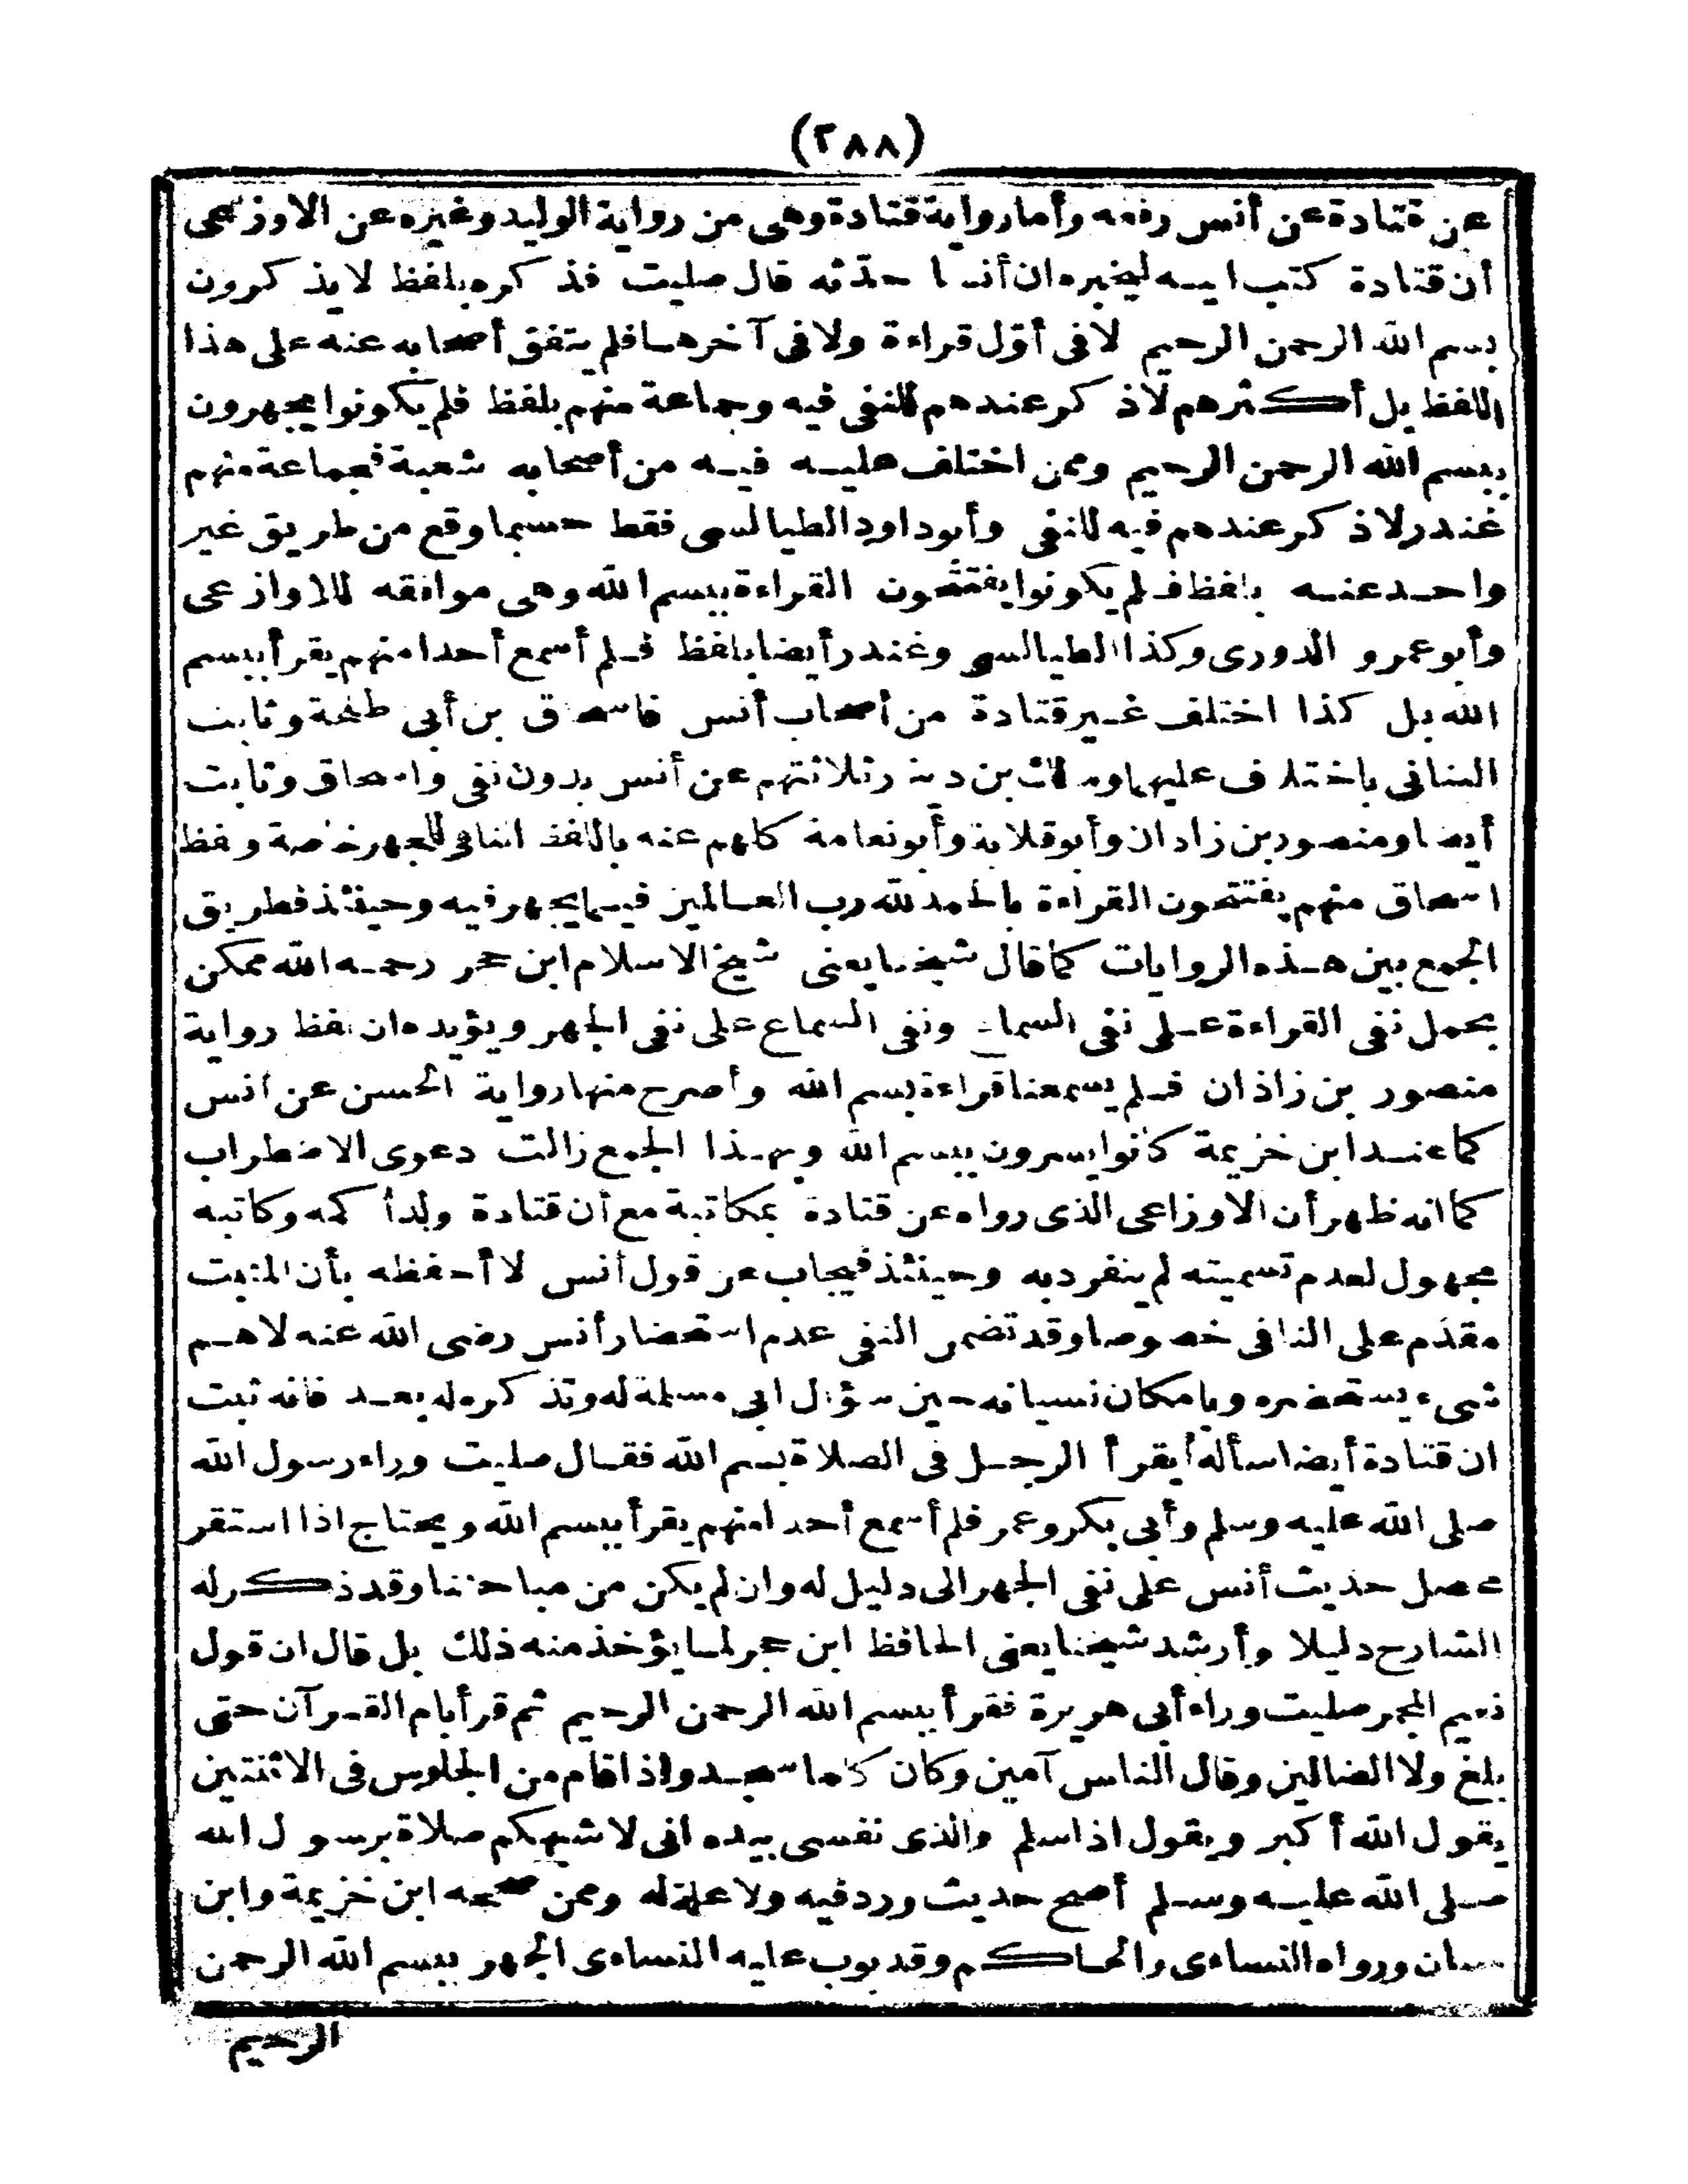 (٢٨٨)
عن قتادة عن أنس رفعه وأما رواية قتادة وهى من رواية الوليد وغيره عن الاوزعى
أن قتادة كتب اليه ليخبره ان أنسا حدّثه قال صليت فذكره بلفظ لا يذكرون
بسم الله الرحمن الرحيم لا فى أوّل قراءة ولا فى آخرها فلم يتفق أصحابه عنه على هذا
اللفظ بل أكثرهم لا ذكر عندهم للنفى فيه وجماعة منهم بلفظ فلم يكونوا يجهرون
ببسم الله الرحمن الرحيم وممن اختلف عليه فيه من أصحابه شعبة فجماعة منهم
غندر لا ذكر عندهم فيه للنفى وأبو داود الطيالسى فقط حسبما وقع من طريق غير
واحد عنه بلفظ فلم يكونوا يفتتحون القراءة ببسم الله وهى موافقه للاوازعى
وأبو عمرو الدورى وكذا الطيالسى وغندر أيضا بلفظ فلم أسمع أحدا منهم يقرأ ببسم
الله بل كذا اختلف غير قتادة من أصحاب أنس فاسحق بن أبى طلحة وثابت
البنانى باختلاف عليهما ومالك بن دينار ثلاثتهم عن أنس بدون نفى واسحاق وثابت
أيضا ومنصور بن زادان وأبو قلابة وأبو نعامة كلهم عنه باللفظ النافى للجهر خاصة ولفظ
اسحاق منهم يفتتحون القراءة بالحمد لله رب العالمين فيما يجهر فيه وحينئذ فطريق
الجمع بين هذه الروايات كما قال شيخنا يعنى شيخ الاسلام ابن حجر رحمه الله ممكن
بحمل نفى القراءة على نفى السماع ونفى السماع على نفى الجهر ويؤيده ان لفظ رواية
منصور بن زاذان فلم يسمعنا قراءة بسم الله وأصرح منها رواية الحسن عن انس
كما عند ابن خزيمة كانوا يسرون ببسم الله وبهذا الجمع زالت دعوى الاضطراب
كما انه ظهر أن الاوزاعى الذى رواه عن قتادة بمكاتبة مع أن قتادة ولد أكمه وكاتبه
مجهول لعدم تسميته لم ينفرد به وحينئذ فيجاب عن قول أنس لا أحفظه بأن المثبت
مقدّم على النافى خصوصا وقد تضمن النفى عدم استحضار أنس رضى الله عنه لاهم
شىء يستحضره وبامكان نسيانه حين سؤال ابى مسلمة له وتذكره له بعد فانه ثبت
ان قتادة أيضا سأله أيقرأ الرجل فى الصلاة بسم الله فقال صليت وراء رسول الله
صلى الله عليه وسلم وأبى بكر وعمر فلم أسمع أحدا منهم يقرأ ببسم الله ويحتاج اذا استقر
محصل حديث أنس على نفى الجهر الى دليل له وان لم يكن من مباحثنا وقد ذكر له
الشارح دليلا وأرشد شيخنا يعنى الحافظ ابن حجر لما يؤخذ منه ذلك بل قال ان قول
نعيم المجمر صليت وراء أبى هريرة فقرأ ببسم الله الرحمن الرحيم ثم قرأ بام القرآن حتى
بلغ ولا الضالين وقال الناس آمين وكان كلما سجد واذا قام من الجلوس فى الاثنتين
يقول الله أكبر ويقول اذا سلم والذى نفسى بيده انى لاشبهكم صلاة برسول الله
صلى الله عليه وسلم أصح حديث ورد فيه ولا علة له وممن صححه ابن خزيمة وابن
حبان ورواه النساءى والحاكم وقد بوب عليه النساءى الجهر ببسم الله الرحمن
الرحيم